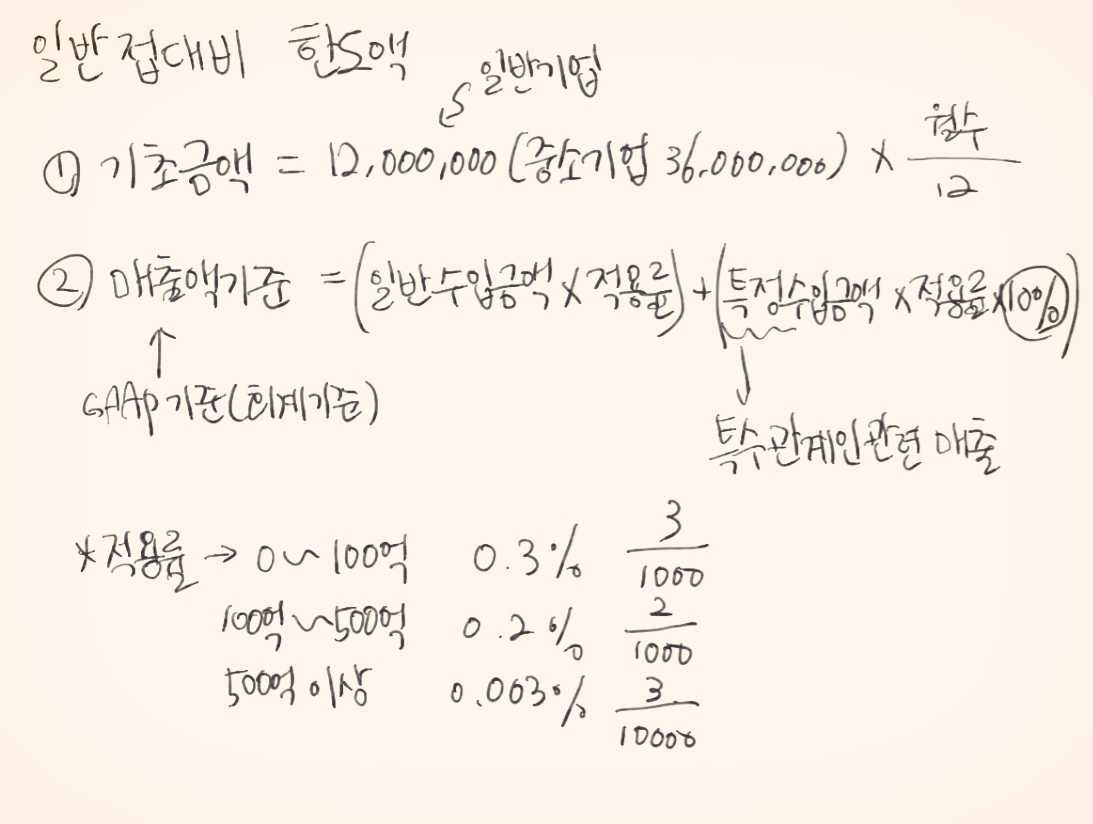 일반접대비 한도액
일반기업
① 기초금액 = 12,000,000 (중소기업 36,000,000) × 월수/12
② 매출액기준 = (일반수입금액 × 적용률) + (특정수입금액 × 적용률 × 10%)
GAAP 기준(회계기준)
특수관계인관련 매출
*적용률 → 0~100억 0.3% 3/1000
100억~500억 0.2% 2/1000
500억 이상 0.003% 3/10000